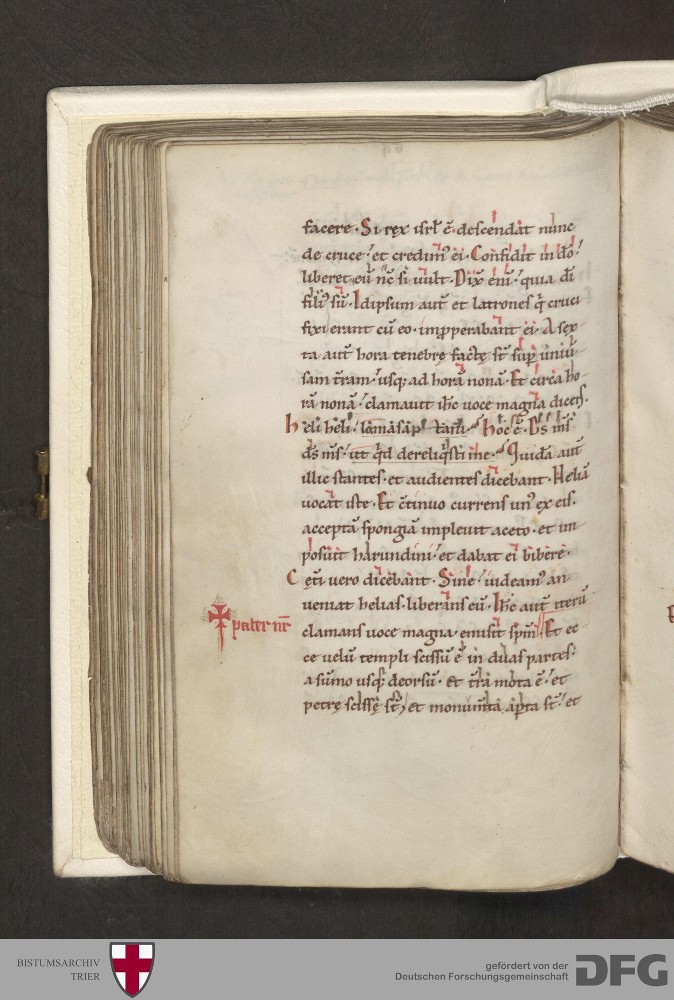 facere. Si rex isrł ē. descendat nunc
de cruce! et credimꝰ ei. Confidit in dō!
liberet eū nc̄ si uult. Dix̄ eni̅! quia dī
filiꝰ sū. Idipsum aut̄ et latrones q̄ cruci
fixi erant cū eo. improperabant ei. A sex
ta aut̄ hora tenebrę factę st̄ suꝑ uniū
sam t̄ram! usq; ad horā nonā. Et circa ho
rā nonā! clamauit ih̄c uoce magna dicens.
heli heli! lema Hoc ē. Ds̄ ms̄
ds̄ ms̄! ut q̄d dereliq̄sti me. Quidā aut̄
illic stantes. et audientes dicebant. Heliā
uocat iste. Et c̄tinuo currens unꝰ ex eis.
acceptā spongiā impleuit aceto. et im
posuit harundini! et dabat ei bibere.
Cęti uero dicebant. Sine! uideamꝰ an
ueniat helias. liberans eū. Ih̄c aut̄ iterū
pater nr̄
clamans uoce magna. emisit spm̄. Et ec
ce uelū templi scissū ē in duas partes!
a sūmo usq; deorsū. et t̄ra mota ē! et
petrę scissę st̄, et monum̄ta aꝑta st̄! et
BISTUMSARCHIV
TRIER
gefördert von der
Deutschen Forschungsgemeinschaft
DFG